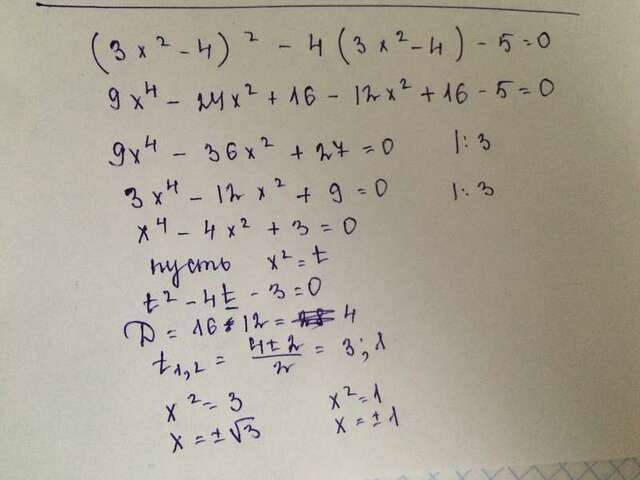 (3x² - 4)² - 4(3x² - 4) - 5 = 0
9x⁴ - 24x² + 16 - 12x² + 16 - 5 = 0
9x⁴ - 36x² + 27 = 0 |:3
3x⁴ - 12x² + 9 = 0 |:3
x⁴ - 4x² + 3 = 0
пусть x² = t
t² - 4t - 3 = 0
D = 16 - 12 = 4
t₁,₂ = (4 ± 2)/2 = 3; 1
x² = 3 x² = 1
x = ±√3 x = ±1